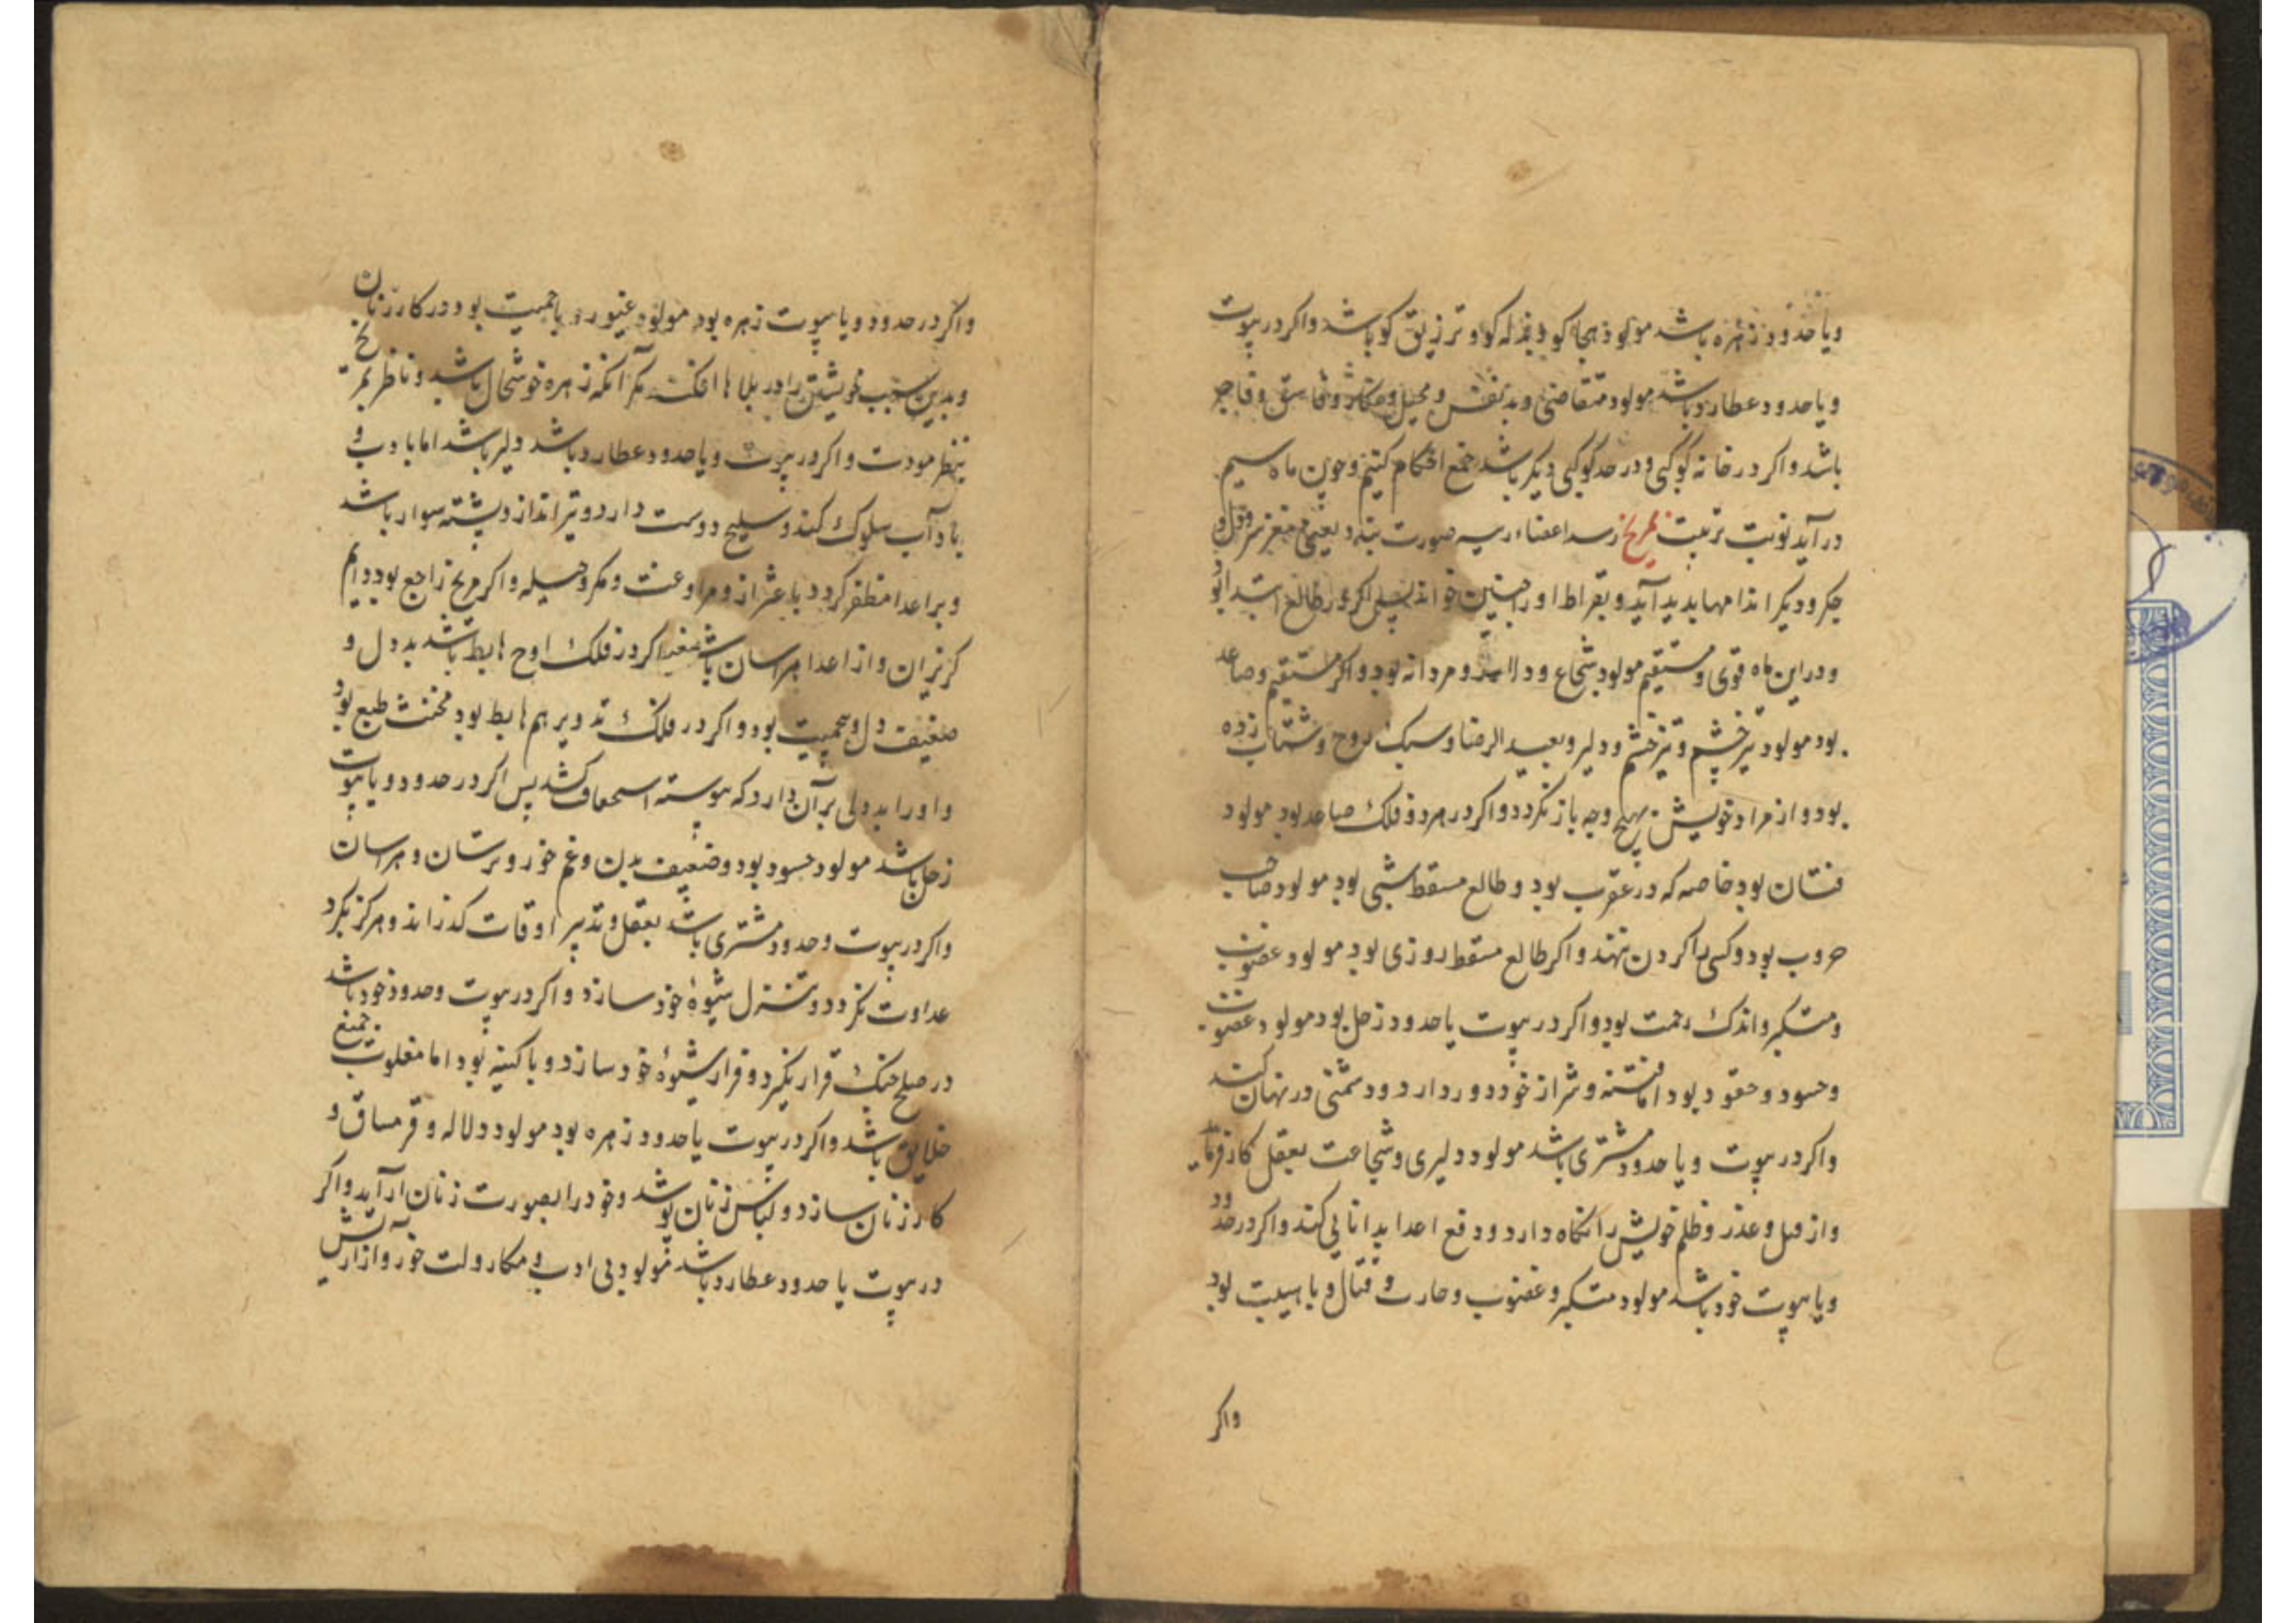 ویا حدود زهره باشد مولود هجا کو و بذله کو و ترزیق کو باشد واکر در بیوت
ویا حدود عطارد باشد مولود متقاضی وبد نفس و محیل و مکار و فاسق و فاجر
باشد واکر در خانه کوکبی ودر حد کوکبی دیکر باشد جمع احکام کنیم وچون ماه سیم
درآید نوبت تربیت بمریخ رسد اعضاء رییسه صورت بندد یعنی مغز سر و دل و
جکر ودیکر اندامها پدید آید وبقراط اورا جنین خواند پس اکر در طالع
ودر این ماه قوی و مستقیم مولود شجاع و دلاور و مردانه بود واکر مستقیم وصاعد
بود مولود تیز چشم و تیز خشم و دلیر وبعید الرضا و سبک روح و شتاب زده
بود واز مراد خویش بهیچ وجه باز نکردد واکر در هر دو فلک صاعد بود مولود
فتان بود خاصه که در عقرب بود و طالع مسقط شبی بود مولود صاحب
حروب بود وکسی را کردن ننهد واکر طالع مسقط روزی بود مولود غضوب
ومتکبر واندک رحمت بود واکر در بیوت یا حدود زحل بود مولود غضوب
وحسود و حقود بود اما فتنه و شر از خود دور دارد و دشمنی در نهان کند
واکر در بیوت ویا حدود مشتری باشد مولود دلیری و شجاعت بعقل کار فرماید
واز قتل و غدر و ظلم خویش را نکاه دارد و دفع اعدا بدانایی کند واکر در حدود
ویا بیوت خود باشد مولود متکبر و غضوب و حارث و قتال و با هیبت بود
واکر
واکر در حدود ویا بیوت زهره بود مولود غیور و با حمیت بود در کار زنان
وبدین سبب خویشتن را در بلاها افکند مکر آنکه زهره خوشحال باشد و ناظر بمریخ
بنظر مودت واکر در بیوت ویا حدود عطارد باشد دلیر باشد اما با ادب و
باداب سلوک کند و سلیح دوست دارد و تیرانداز و سوار باشد
وبر اعدا مظفر کردد باعتزاز و مراوغت ومکر وحیله واکر مریخ راجع بود دایم
کریزان واز اعدا هراسان باشد اکر در فلک اوج هابط باشد بد دل و
ضعیف دل و بود واکر در فلک تدویر هم هابط بود مخنث طبع بود
واورا بد دلی بر آن دارد که پیوسته استخفاف کشد پس اکر در حدود ویا بیوت
زحل باشد مولود حسود بود وضعیف بدن وغم خور و ترسان و هراسان
واکر در بیوت وحدود مشتری باشد بعقل و تدبیر اوقات کذراند وهرکز بکرد
عداوت نکردد و تنزل شیوهٔ خود سازد واکر در بیوت وحدود خود باشد
در صلح جنک قرار نکیرد وفرار شیوهٔ خود سازد وبا کینه بود اما مغلوب جمیع
خلایق باشد واکر در بیوت یا حدود زهره بود مولود دلاله و قرمساق و
کار زنان سازد ولباس زنان پوشد وخود را بصورت زنان آراید واکر
در بیوت یا حدود عطارد باشد مولود بی ادب و مکار ولت خور